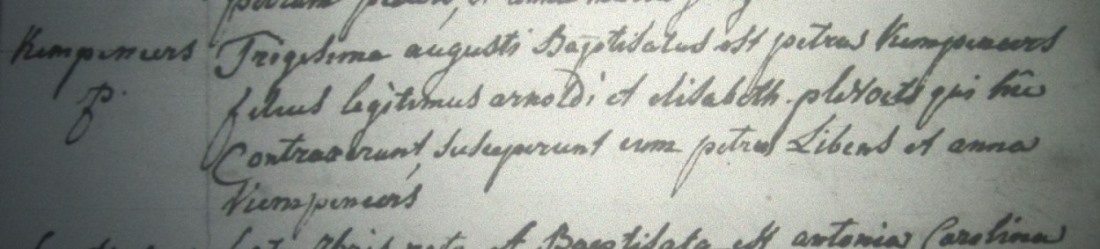 petrum et anna
Kempeneers Trigesima augusti Baptisatus est petrus Kempeneers
p. filius legitimus arnoldi et elisabeth plevoets qui hic
Contraxerunt, susceperunt eum petrus Libens et anna
Kempeneers
et Baptisata est antonia Carolina